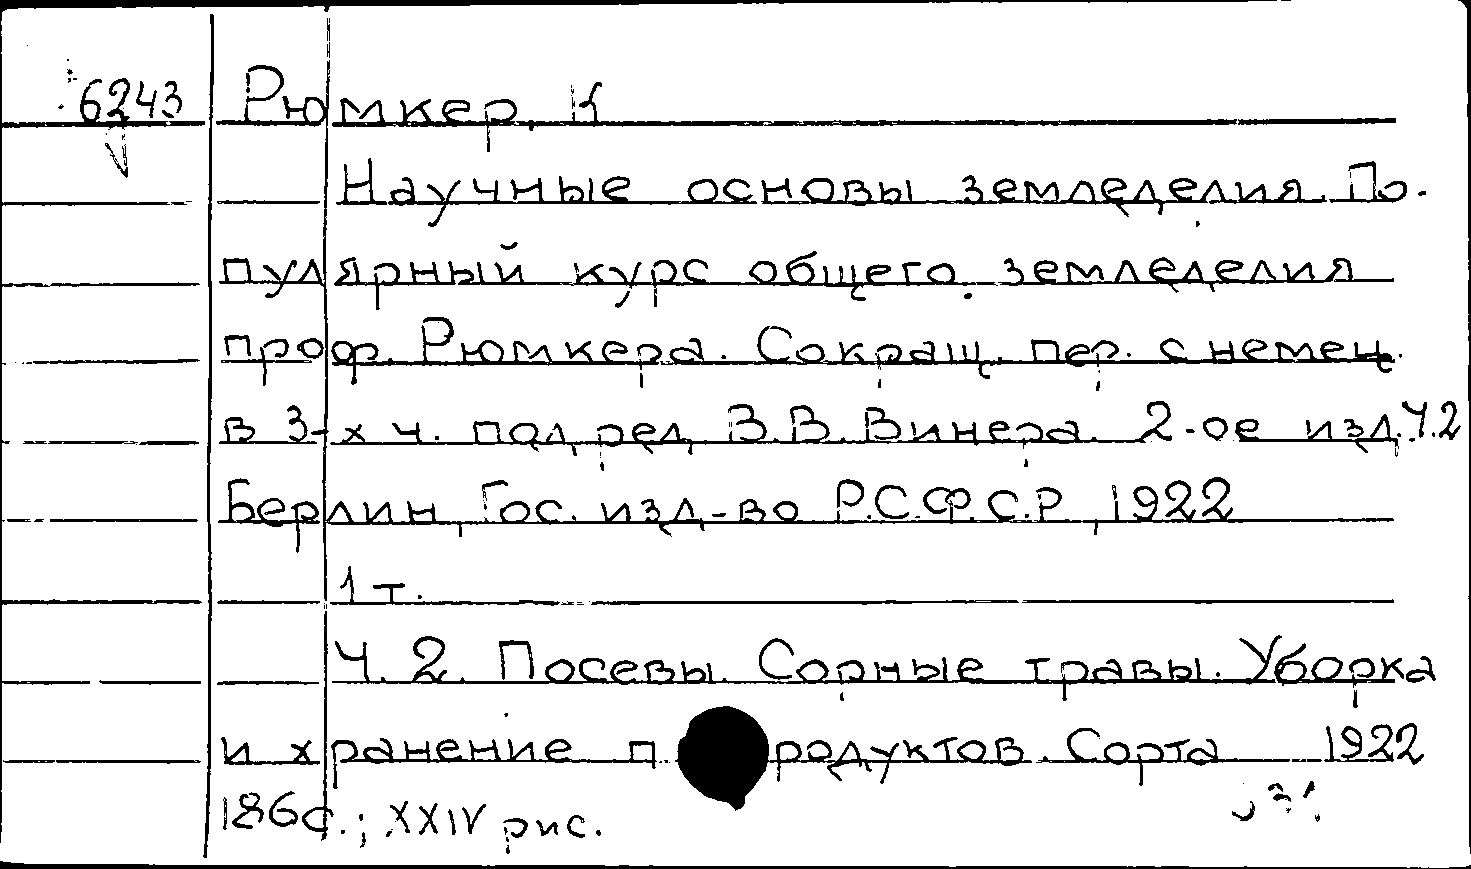 6243 Рюмкер, К
Научные основы земледелия. По-
пулярный курс общего земледелия
проф. Рюмкера. Сокращ. пер. с немец.
в 3-х ч. под ред. В.В. Винера. 2-ое изд. Ч.2
Берлин, Гос. изд-во Р.С.Ф.С.Р, 1922
1 т.
Ч. 2. Посевы. Сорные травы. Уборка
и хранение продуктов. Сорта 1922
186с.; XXIV рис.